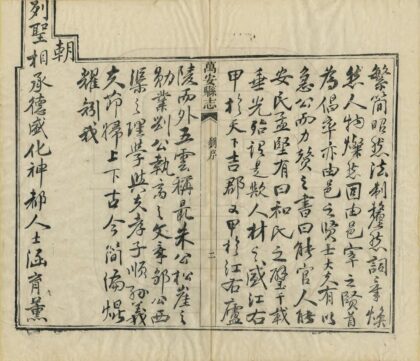 繁簡昭然法制釐然詞章煥
然人物燦然固由邑宰之賢首
為倡率亦由邑之賢士大夫有以
急公而力贊之書曰能官人能
安民孟堅有曰和氏之璧千載
垂光是歟人材之盛江右
甲於天下吉郡又甲於江右廬
萬安縣志 劉序 二
陵而外五雲稱最朱公松崖之
勛業劉公執齋之文章郭公西
渠之理學與夫孝子順孫義
夫節婦上下古今簡編焜
耀矧我
朝
列聖相承德威化神都人士涵育薰